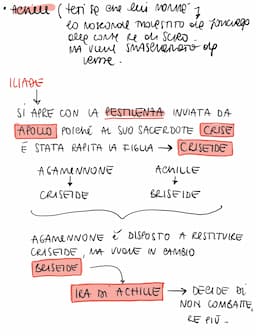 • Achille (Teti sa che lui morrà →
lo nasconde travestito da fanciulla
alla corte re di Sciro.
Ma viene smascherato da
Ulisse.
ILIADE →
SI APRE CON LA PESTILENZA INVIATA DA
APOLLO POICHÉ AL SUO SACERDOTE CRISE
È STATA RAPITA LA FIGLIA → CRISEIDE
AGAMENNONE ACHILLE
↓ ↓
CRISEIDE BRISEIDE
AGAMENNONE È DISPOSTO A RESTITUIRE
CRISEIDE, MA VUOLE IN CAMBIO
BRISEIDE
IRA DI ACHILLE → DECIDE DI
NON COMBATTE
RE PIÙ.